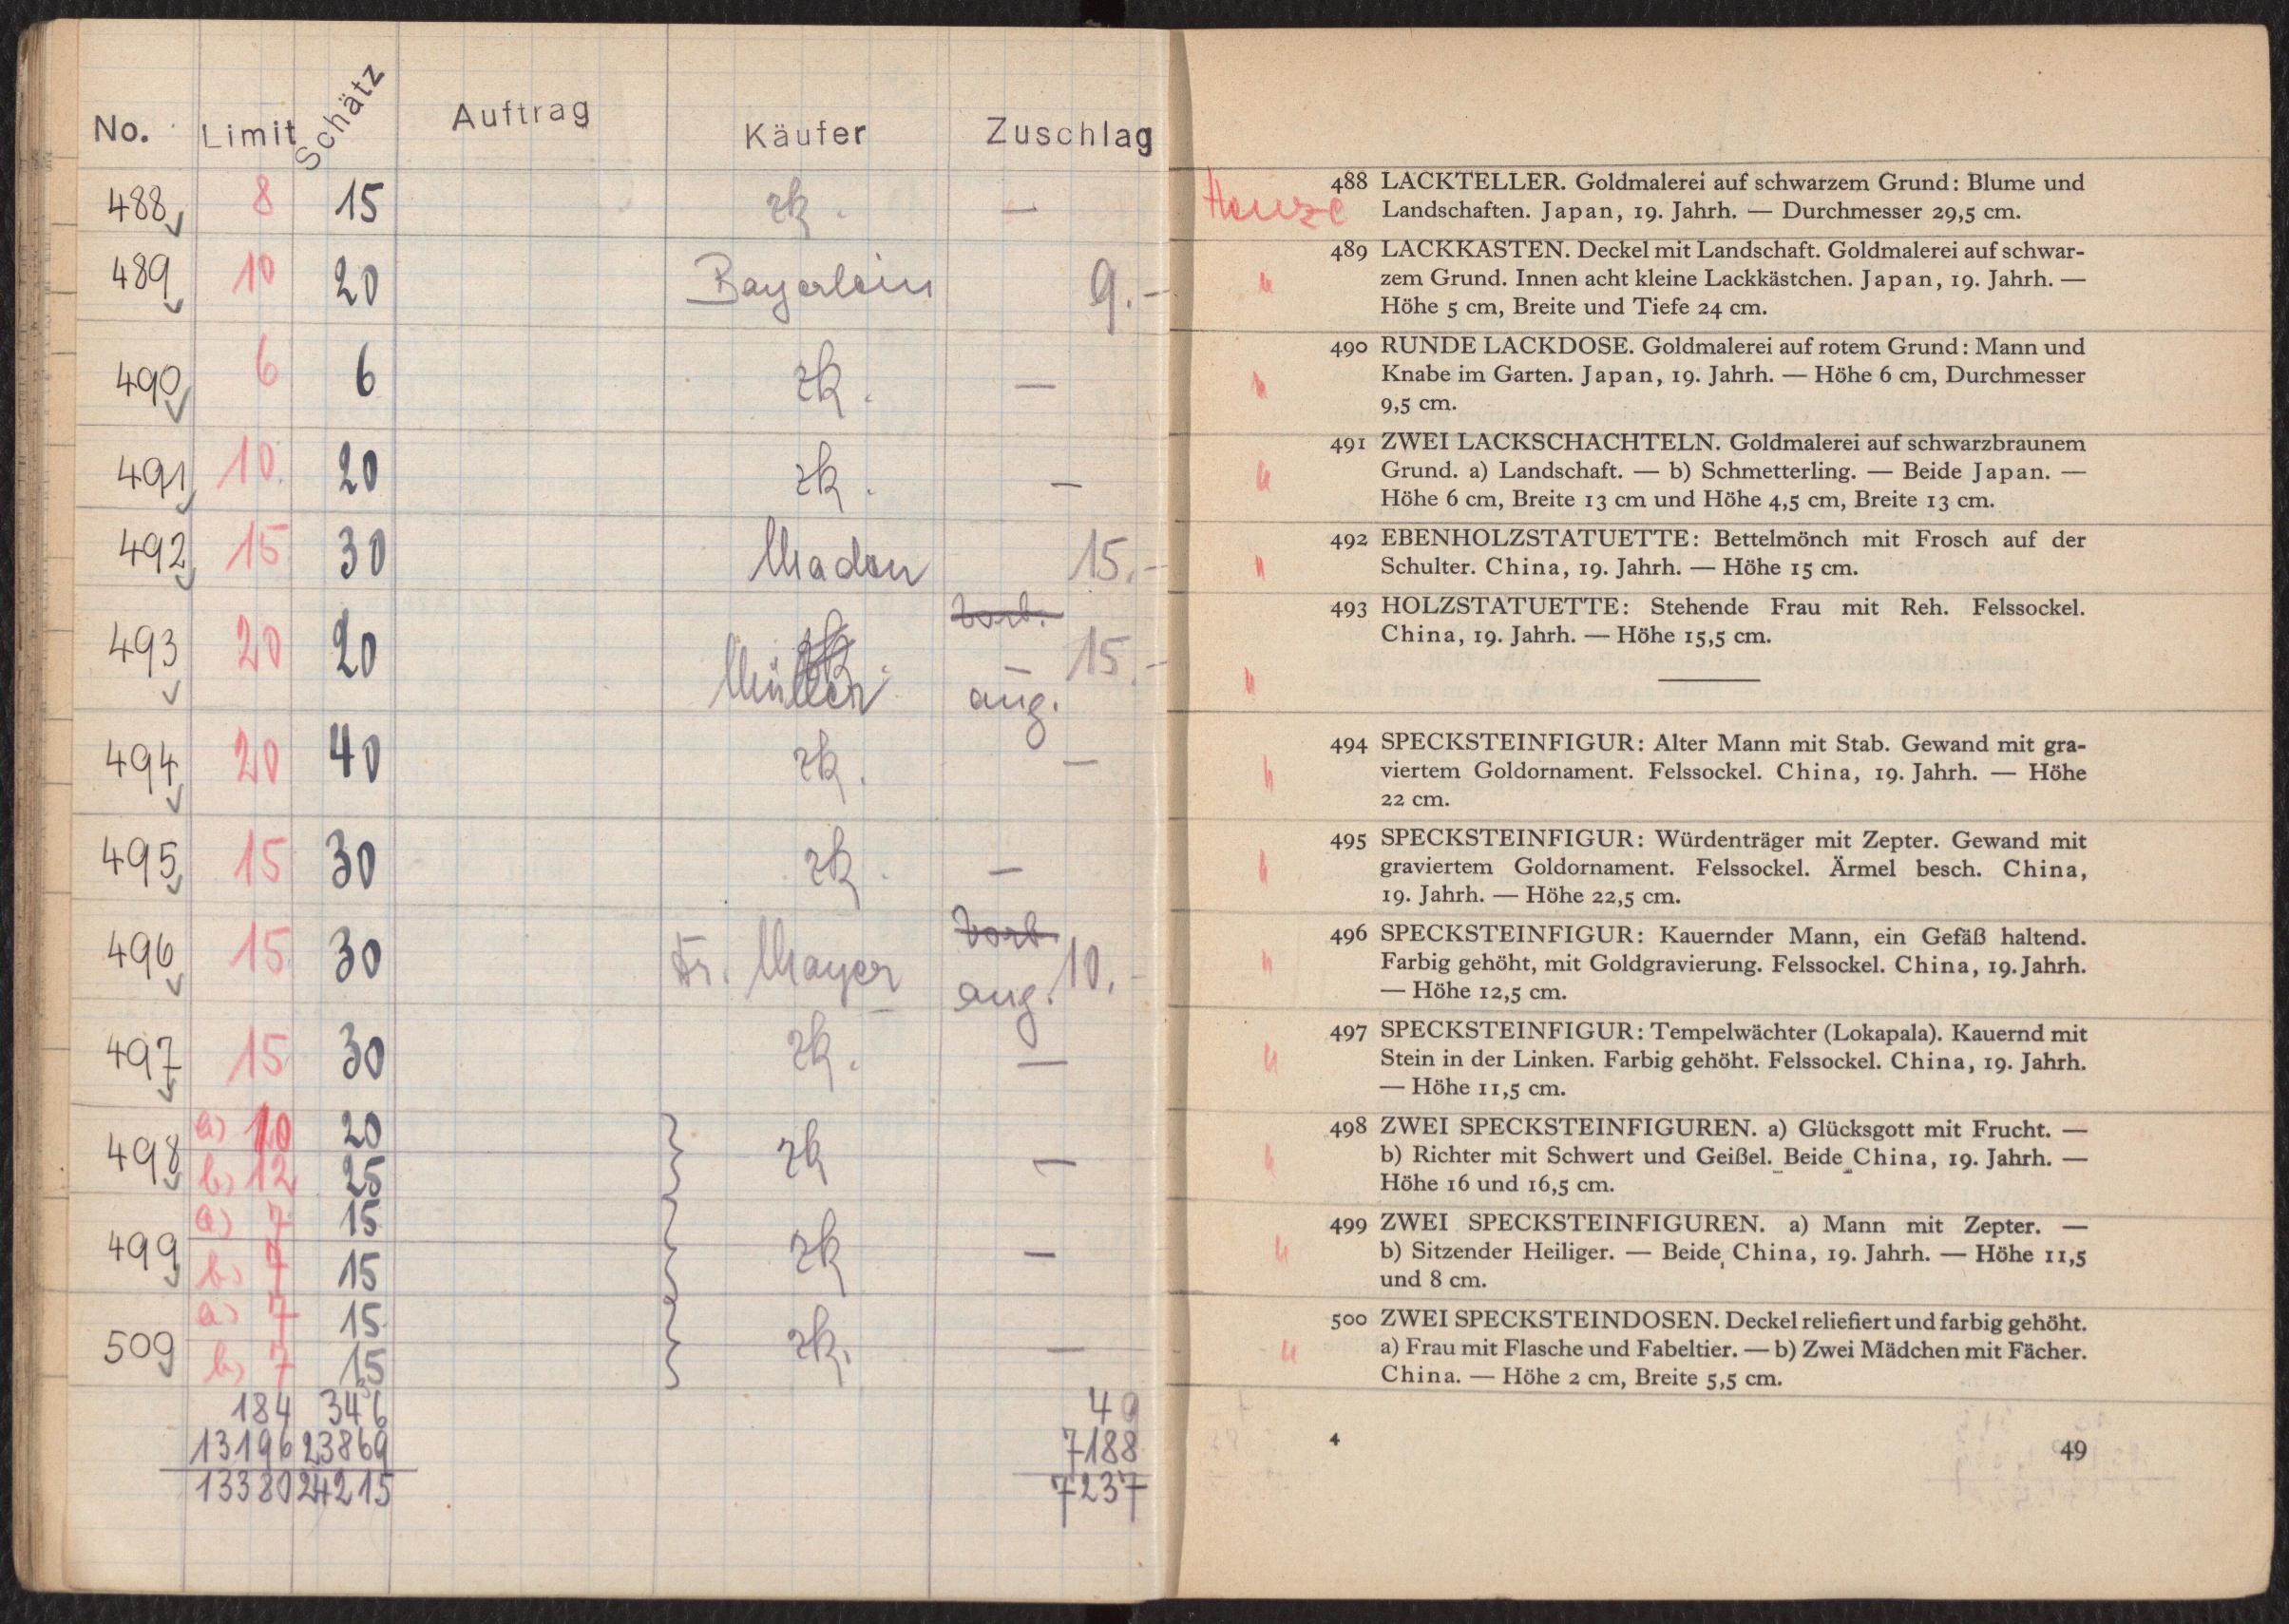 No. Limit Schätz Auftrag Käufer Zuschlag
488 8 15 zk. —
489 10 20 Bayerlein 9.-
490 6 6 zk. —
491 10. 20 zk. —
492 15 30 15.-
vorb.
493 20 20 zk. — 15.-
Müller aug.
494 20 40 zk. —
495 15 30 zk. —
vorb.
496 15 30 Fr. Mayer aug. 10.-
497 15 30 zk. —
498 a) 10 20 zk —
b) 12 25
499 a) 7 15 zk —
b) 7 15
500 a) 7 15 zk. —
b) 7 15
184 346 49
13196 23869 7188
13380 24215 7237
488 LACKTELLER. Goldmalerei auf schwarzem Grund: Blume und
Landschaften. Japan, 19. Jahrh. — Durchmesser 29,5 cm.
489 LACKKASTEN. Deckel mit Landschaft. Goldmalerei auf schwar-
" zem Grund. Innen acht kleine Lackkästchen. Japan, 19. Jahrh. —
Höhe 5 cm, Breite und Tiefe 24 cm.
490 RUNDE LACKDOSE. Goldmalerei auf rotem Grund: Mann und
" Knabe im Garten. Japan, 19. Jahrh. — Höhe 6 cm, Durchmesser
9,5 cm.
491 ZWEI LACKSCHACHTELN. Goldmalerei auf schwarzbraunem
" Grund. a) Landschaft. — b) Schmetterling. — Beide Japan. —
Höhe 6 cm, Breite 13 cm und Höhe 4,5 cm, Breite 13 cm.
492 EBENHOLZSTATUETTE: Bettelmönch mit Frosch auf der
" Schulter. China, 19. Jahrh. — Höhe 15 cm.
493 HOLZSTATUETTE: Stehende Frau mit Reh. Felssockel.
China, 19. Jahrh. — Höhe 15,5 cm.
"
494 SPECKSTEINFIGUR: Alter Mann mit Stab. Gewand mit gra-
" viertem Goldornament. Felssockel. China, 19. Jahrh. — Höhe
22 cm.
495 SPECKSTEINFIGUR: Würdenträger mit Zepter. Gewand mit
" graviertem Goldornament. Felssockel. Ärmel besch. China,
19. Jahrh. — Höhe 22,5 cm.
496 SPECKSTEINFIGUR: Kauernder Mann, ein Gefäß haltend.
" Farbig gehöht, mit Goldgravierung. Felssockel. China, 19. Jahrh.
— Höhe 12,5 cm.
497 SPECKSTEINFIGUR: Tempelwächter (Lokapala). Kauernd mit
" Stein in der Linken. Farbig gehöht. Felssockel. China, 19. Jahrh.
— Höhe 11,5 cm.
498 ZWEI SPECKSTEINFIGUREN. a) Glücksgott mit Frucht. —
" b) Richter mit Schwert und Geißel. Beide China, 19. Jahrh. —
Höhe 16 und 16,5 cm.
499 ZWEI SPECKSTEINFIGUREN. a) Mann mit Zepter. —
" b) Sitzender Heiliger. — Beide China, 19. Jahrh. — Höhe 11,5
und 8 cm.
500 ZWEI SPECKSTEINDOSEN. Deckel reliefiert und farbig gehöht.
" a) Frau mit Flasche und Fabeltier. — b) Zwei Mädchen mit Fächer.
China. — Höhe 2 cm, Breite 5,5 cm.
4 49